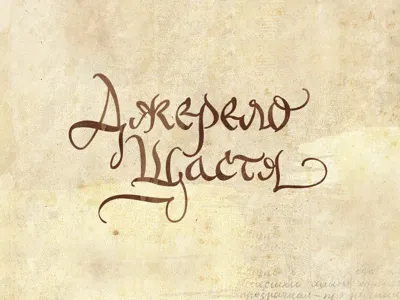 Джерело
Щастя